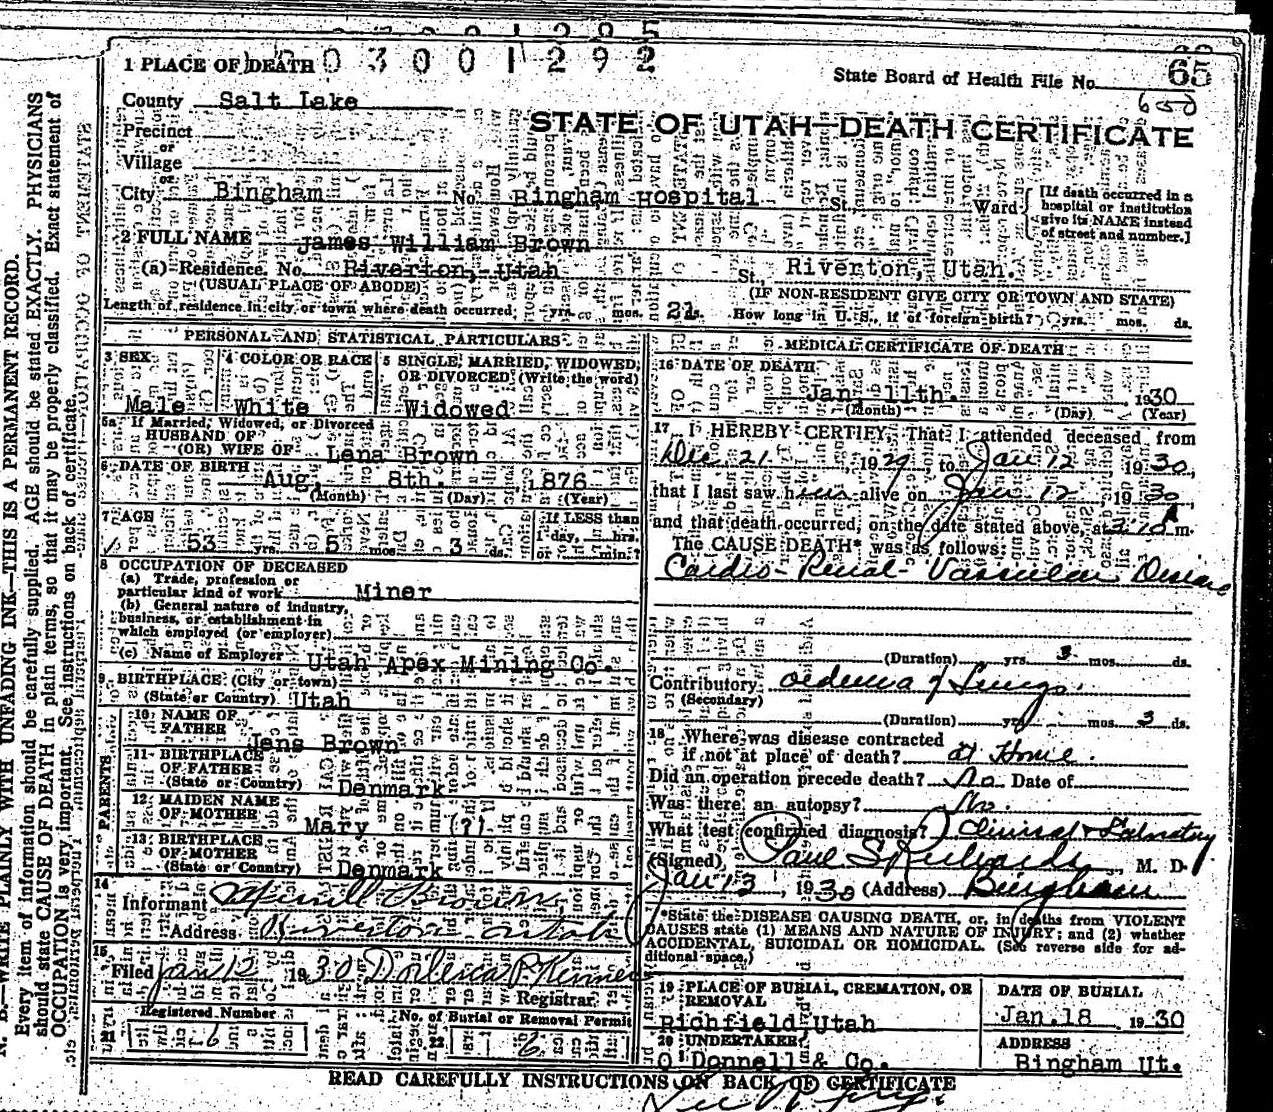 03001292
1 PLACE OF DEATH
State Board of Health File No. 65
County Salt Lake
STATE OF UTAH—DEATH CERTIFICATE
Precinct
or
Village
or
City Bingham No. Bingham Hospital St. Ward
[If death occurred in a hospital or institution give its NAME instead of street and number.]
2 FULL NAME James William Brown
(a) Residence. No. Riverton, Utah St., Riverton, Utah.
(USUAL PLACE OF ABODE) (IF NON-RESIDENT GIVE CITY OR TOWN AND STATE)
Length of residence in city or town where death occurred; yrs. mos. 21 ds. How long in U. S., if of foreign birth? yrs. mos. ds.
PERSONAL AND STATISTICAL PARTICULARS
3 SEX 4 COLOR OR RACE 5 SINGLE, MARRIED, WIDOWED, OR DIVORCED (Write the word)
Male White Widowed
5a If Married, Widowed, or Divorced
HUSBAND OF
(OR) WIFE OF Lena Brown
6 DATE OF BIRTH Aug. 8th. 1876
(Month) (Day) (Year)
7 AGE If LESS than
53 yrs. 5 mos. 3 ds. 1 day, hrs.
or min.?
8 OCCUPATION OF DECEASED
(a) Trade, profession or
particular kind of work Miner
(b) General nature of industry,
business, or establishment in
which employed (or employer)
(c) Name of Employer Utah Apex Mining Co.
9 BIRTHPLACE (City or town)
(State or Country) Utah
PARENTS
10 NAME OF
FATHER Jens Brown
11 BIRTHPLACE
OF FATHER
(State or Country) Denmark
12 MAIDEN NAME
OF MOTHER Mary (?)
13 BIRTHPLACE
OF MOTHER
(State or Country) Denmark
14
Informant Merrill Brown
Address Riverton Utah
15
Filed Jan 12 1930
Registrar.
Registered Number
No. of Burial or Removal Permit
6
6
MEDICAL CERTIFICATE OF DEATH
16 DATE OF DEATH
Jan. 11th. 1930
(Month) (Day) (Year)
17 I HEREBY CERTIFY, That I attended deceased from
Dec 21, 1929, to Jan 12 1930,
that I last saw him alive on Jan 12 1930
and that death occurred, on the date stated above, at 3:10 A m.
The CAUSE DEATH* was as follows:
Cardio-Renal-Vascular Disease
(Duration) yrs. 3 mos. ds.
Contributory oedema of Lungs.
(Secondary)
(Duration) yrs. mos. 3 ds.
18 Where was disease contracted
if not at place of death? at Home.
Did an operation precede death? No Date of
Was there an autopsy? No.
What test confirmed diagnosis? Clinical & Labratory
(Signed) Paul S Richards, M. D.
Jan 13, 1930 (Address) Bingham
*State the DISEASE CAUSING DEATH, or, in deaths from VIOLENT
CAUSES state (1) MEANS AND NATURE OF INJURY; and (2) whether
ACCIDENTAL, SUICIDAL OR HOMICIDAL. (See reverse side for ad-
ditional space.)
19 PLACE OF BURIAL, CREMATION, OR REMOVAL
Richfield, Utah
DATE OF BURIAL
Jan. 18 1930
20 UNDERTAKER
O'Donnell & Co.
ADDRESS
Bingham Ut.
READ CAREFULLY INSTRUCTIONS ON BACK OF CERTIFICATE
N. B.—WRITE PLAINLY WITH UNFADING INK—THIS IS A PERMANENT RECORD.
Every item of information should be carefully supplied. AGE should be stated EXACTLY. PHYSICIANS
should state CAUSE OF DEATH in plain terms, so that it may be properly classified. Exact statement of
OCCUPATION is very important. See instructions on back of certificate.